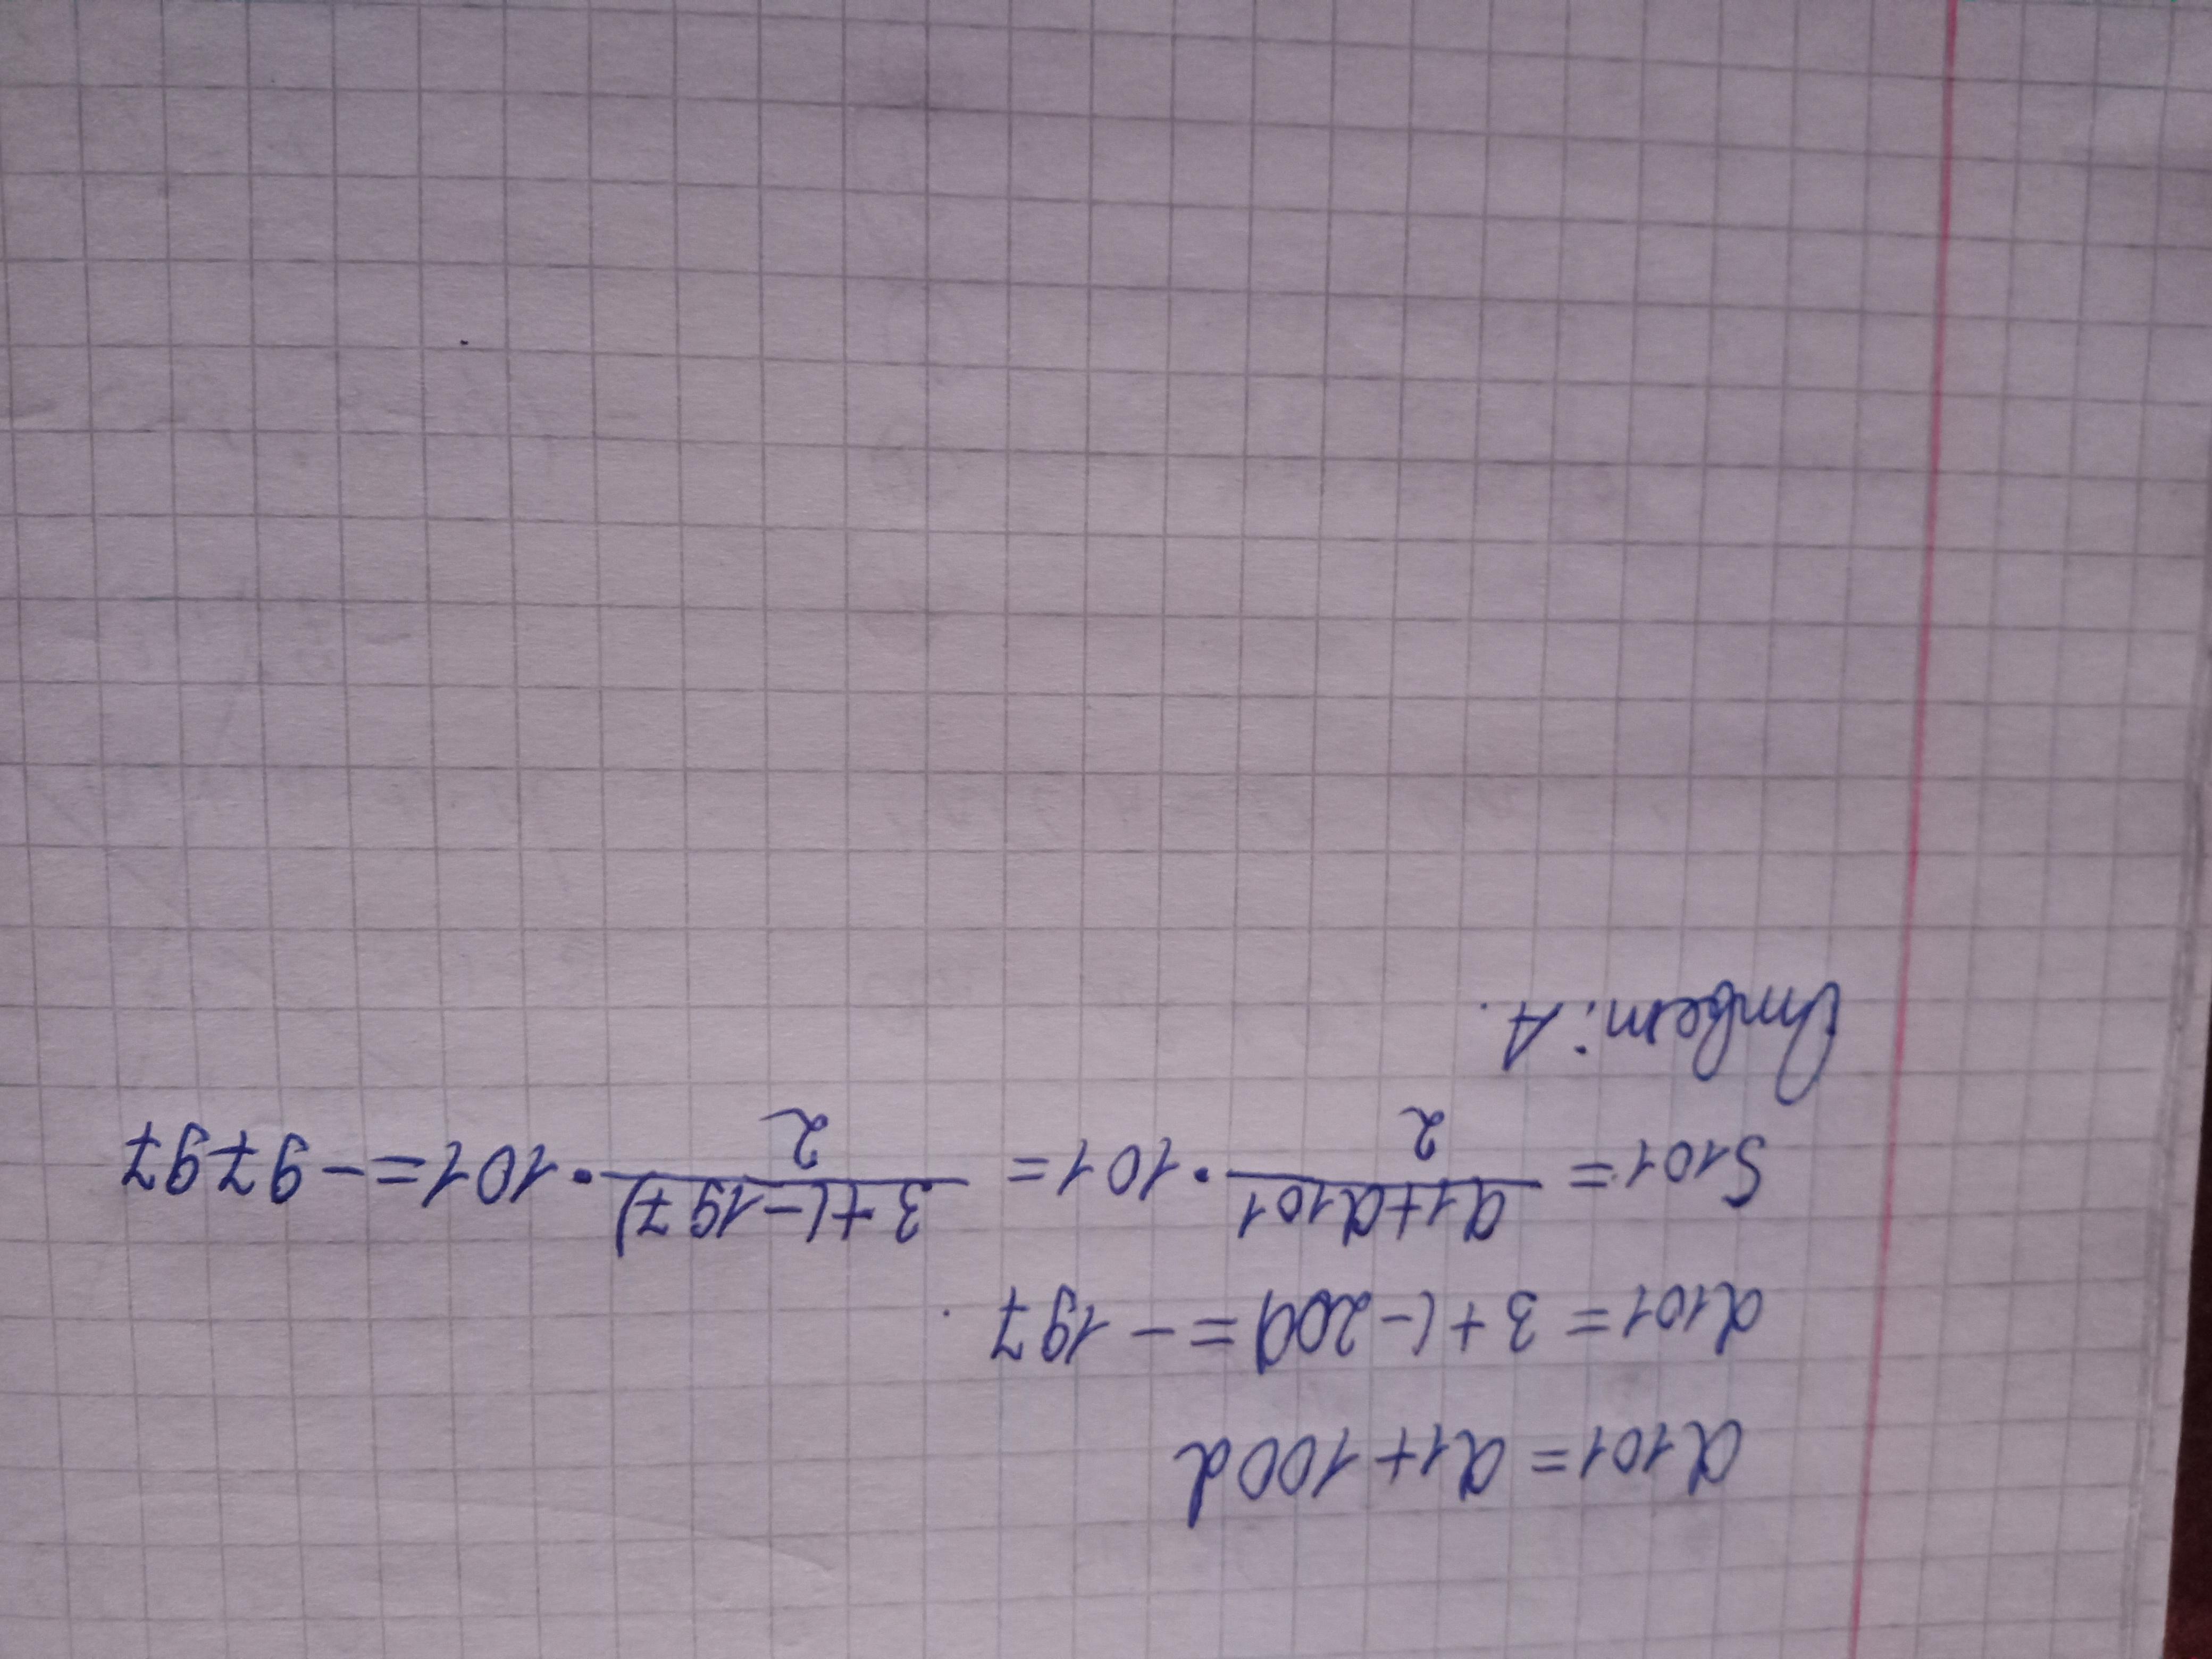 a101 = a1 + 100d
a101 = 3 + (-200) = -197
S101 = (a1 + a101)/2 · 101 = (3 + (-197))/2 · 101 = -9797
Ответ: А.